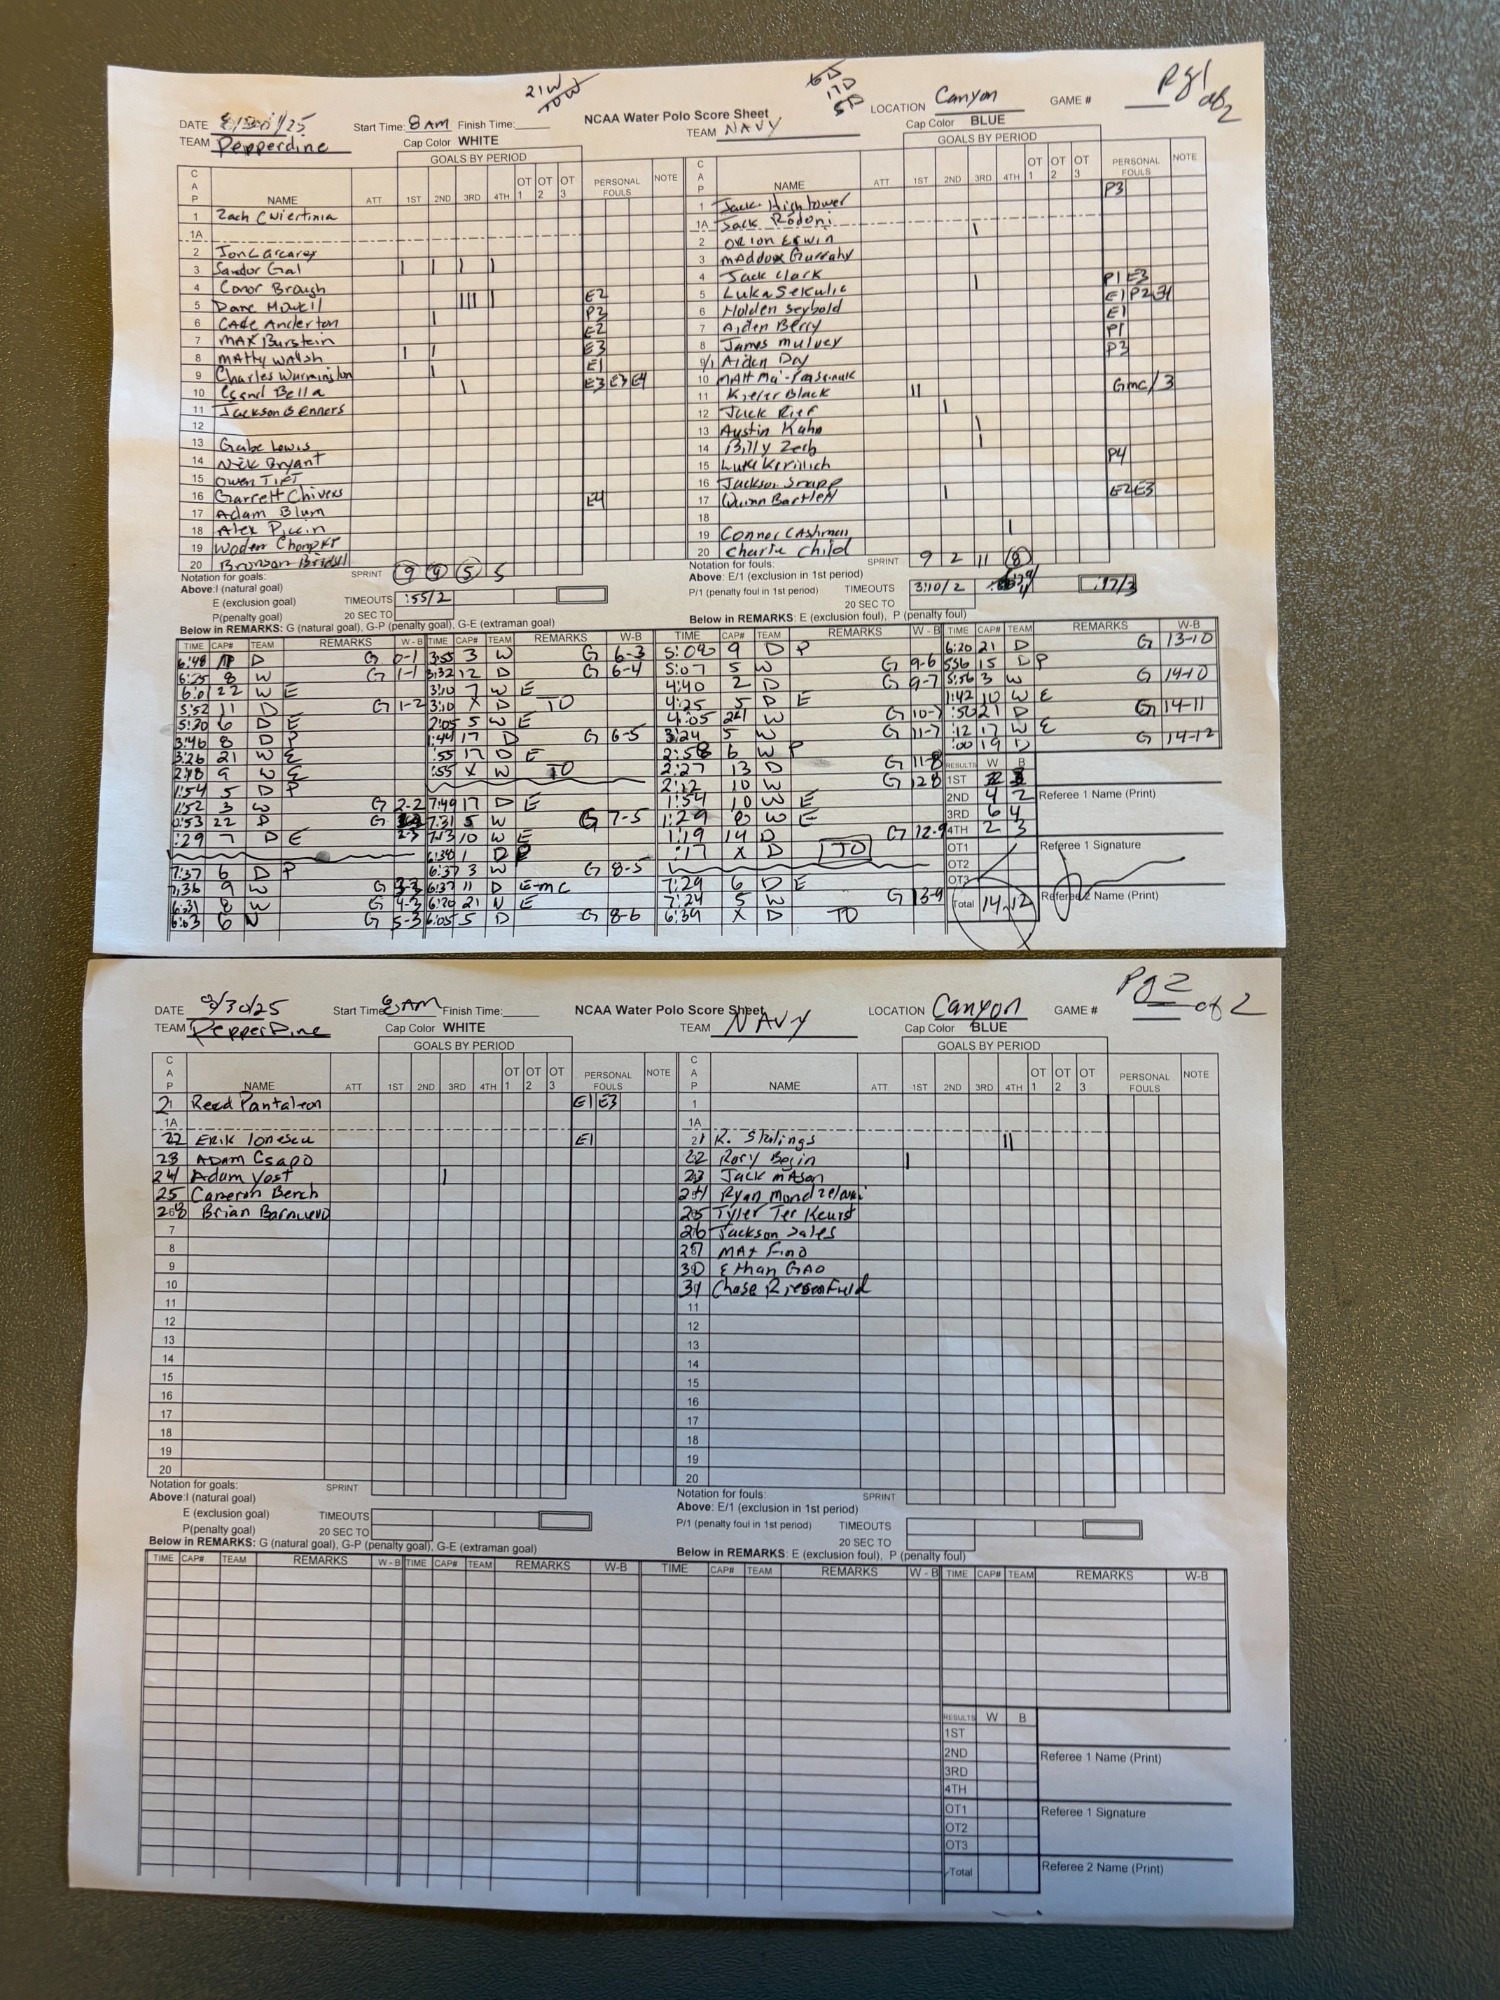 21W
10W
17D
5D
Pg 1 of 2
DATE 8/30/25 Start Time: 8 AM Finish Time: NCAA Water Polo Score Sheet LOCATION Canyon GAME #
TEAM Pepperdine Cap Color WHITE TEAM NAVY Cap Color BLUE
GOALS BY PERIOD GOALS BY PERIOD
CAP NAME ATT 1ST 2ND 3RD 4TH OT 1 OT 2 OT 3 PERSONAL FOULS NOTE CAP NAME ATT 1ST 2ND 3RD 4TH OT 1 OT 2 OT 3 PERSONAL FOULS NOTE
1 Zach Cwiertinia 1 Jack Hightower P3
1A 1A Jack Rodoni
2 Jon Carcarey 2 Orion Erwin I
3 Sandor Gal I I I I 3 Maddox
4 Conor Brough 4 Jack Clark
5 Dane Howell III I E2 5 Luka Sekulic I P1 E3
6 Cade Anderton I P3 6 Holden Seybold E1 P2
7 MAX Burstein E2 7 Aiden Berry E1
8 MAtty Walsh I I E3 8 James Mulvey P1
9 Charles Warmington I E1 9 Aiden Day P3
10 Bella I E3 E3 E4 10 MAtt
11 Jackson Benners 11 Black II Gmc/3
12 12 Jack
13 Gabe Lewis 13 Austin Kahn I
14 Nick Bryant 14 Billy Zech I
15 Owen Tift 15 Luka P4
16 Garrett Chivers 16 Jackson Snapp
17 Adam Blum E4 17 Quinn Bartlett I E2 E3
18 Alex 18
19 19 Connor CAshman I
20 Bronson 20 Charlie Child
Notation for goals: SPRINT 9 9 5 5 Notation for fouls: SPRINT 9 2 11 8
Above: I (natural goal) Above: E/1 (exclusion in 1st period)
E (exclusion goal) TIMEOUTS :55/2 P/1 (penalty foul in 1st period) TIMEOUTS 3:10/2 :17/3
P(penalty goal) 20 SEC TO 20 SEC TO
Below in REMARKS: G (natural goal), G-P (penalty goal), G-E (extraman goal) Below in REMARKS: E (exclusion foul), P (penalty foul)
TIME CAP# TEAM REMARKS W - B TIME CAP# TEAM REMARKS W-B TIME CAP# TEAM REMARKS W - B TIME CAP# TEAM REMARKS W-B
6:48 D G 0-1 3:55 3 W G 6-3 5:09 9 D P 6:20 21 D G 13-10
6:25 8 W G 1-1 3:32 12 D G 6-4 5:07 5 W G 9-6 5:56 15 D P
6:01 22 W E 3:10 7 W E 4:40 2 D G 9-7 5:56 3 W G 14-10
5:52 11 D G 1-2 3:10 X D TO 4:25 5 D E 1:42 10 W E
5:20 6 D E 2:05 5 W E 4:05 24 W G 10-7 :50 21 D G 14-11
3:46 8 D P 1:44 17 D G 6-5 3:24 5 W G 11-7 :12 17 W E
3:26 21 W E :55 17 D E 2:58 6 W P :00 19 D G 14-12
2:18 9 W E :55 X W TO 2:27 13 D G 11-8 RESULTS W B
1:54 5 D P 2:12 10 W G 12 8 1ST
1:52 3 W G 2-2 7:49 17 D E 1:54 10 W E 2ND 4 2 Referee 1 Name (Print)
0:53 22 D G 2-3 7:31 5 W G 7-5 1:29 8 W E 3RD 6 4
:29 7 D E 7:13 10 W E 1:19 14 D G 12-9 4TH 2 3
6:38 1 D P :17 X D TO OT1 Referee 1 Signature
7:37 6 D P 6:37 3 W G 8-5 OT2
7:36 9 W G 3-3 6:37 11 D E-mc 7:29 6 D E OT3
6:31 8 W G 4-3 6:20 21 W E 7:24 5 W G 13-9 Total 14-12 Referee 2 Name (Print)
6:03 6 W G 5-3 6:05 5 D G 8-6 6:39 X D TO
Pg 2 of 2
DATE 8/30/25 Start Time 8 AM Finish Time: NCAA Water Polo Score Sheet LOCATION Canyon GAME #
TEAM PepperDine Cap Color WHITE TEAM NAVY Cap Color BLUE
GOALS BY PERIOD GOALS BY PERIOD
CAP NAME ATT 1ST 2ND 3RD 4TH OT 1 OT 2 OT 3 PERSONAL FOULS NOTE CAP NAME ATT 1ST 2ND 3RD 4TH OT 1 OT 2 OT 3 PERSONAL FOULS NOTE
21 Reed Pantaleon E1 E3 1
1A 1A
22 ERIK Ionescu E1 21 R. Stalings II
23 ADAM Csapo 22 Rory Begin I
24 Adam Yost I 23 Jack mAson
25 Cameron Bench 24 Ryan
26 Brian 25 Tyler Ter Keurst
7 26 Jackson Sales
8 27 MAX Fino
9 30 Ethan GAO
10 31 Chase
11 11
12 12
13 13
14 14
15 15
16 16
17 17
18 18
19 19
20 20
Notation for goals: SPRINT Notation for fouls: SPRINT
Above:I (natural goal) Above: E/1 (exclusion in 1st period)
E (exclusion goal) TIMEOUTS P/1 (penalty foul in 1st period) TIMEOUTS
P(penalty goal) 20 SEC TO 20 SEC TO
Below in REMARKS: G (natural goal), G-P (penalty goal), G-E (extraman goal) Below in REMARKS: E (exclusion foul), P (penalty foul)
TIME CAP# TEAM REMARKS W - B TIME CAP# TEAM REMARKS W-B TIME CAP# TEAM REMARKS W - B TIME CAP# TEAM REMARKS W-B
RESULTS W B
1ST
2ND Referee 1 Name (Print)
3RD
4TH
OT1 Referee 1 Signature
OT2
OT3
Total Referee 2 Name (Print)